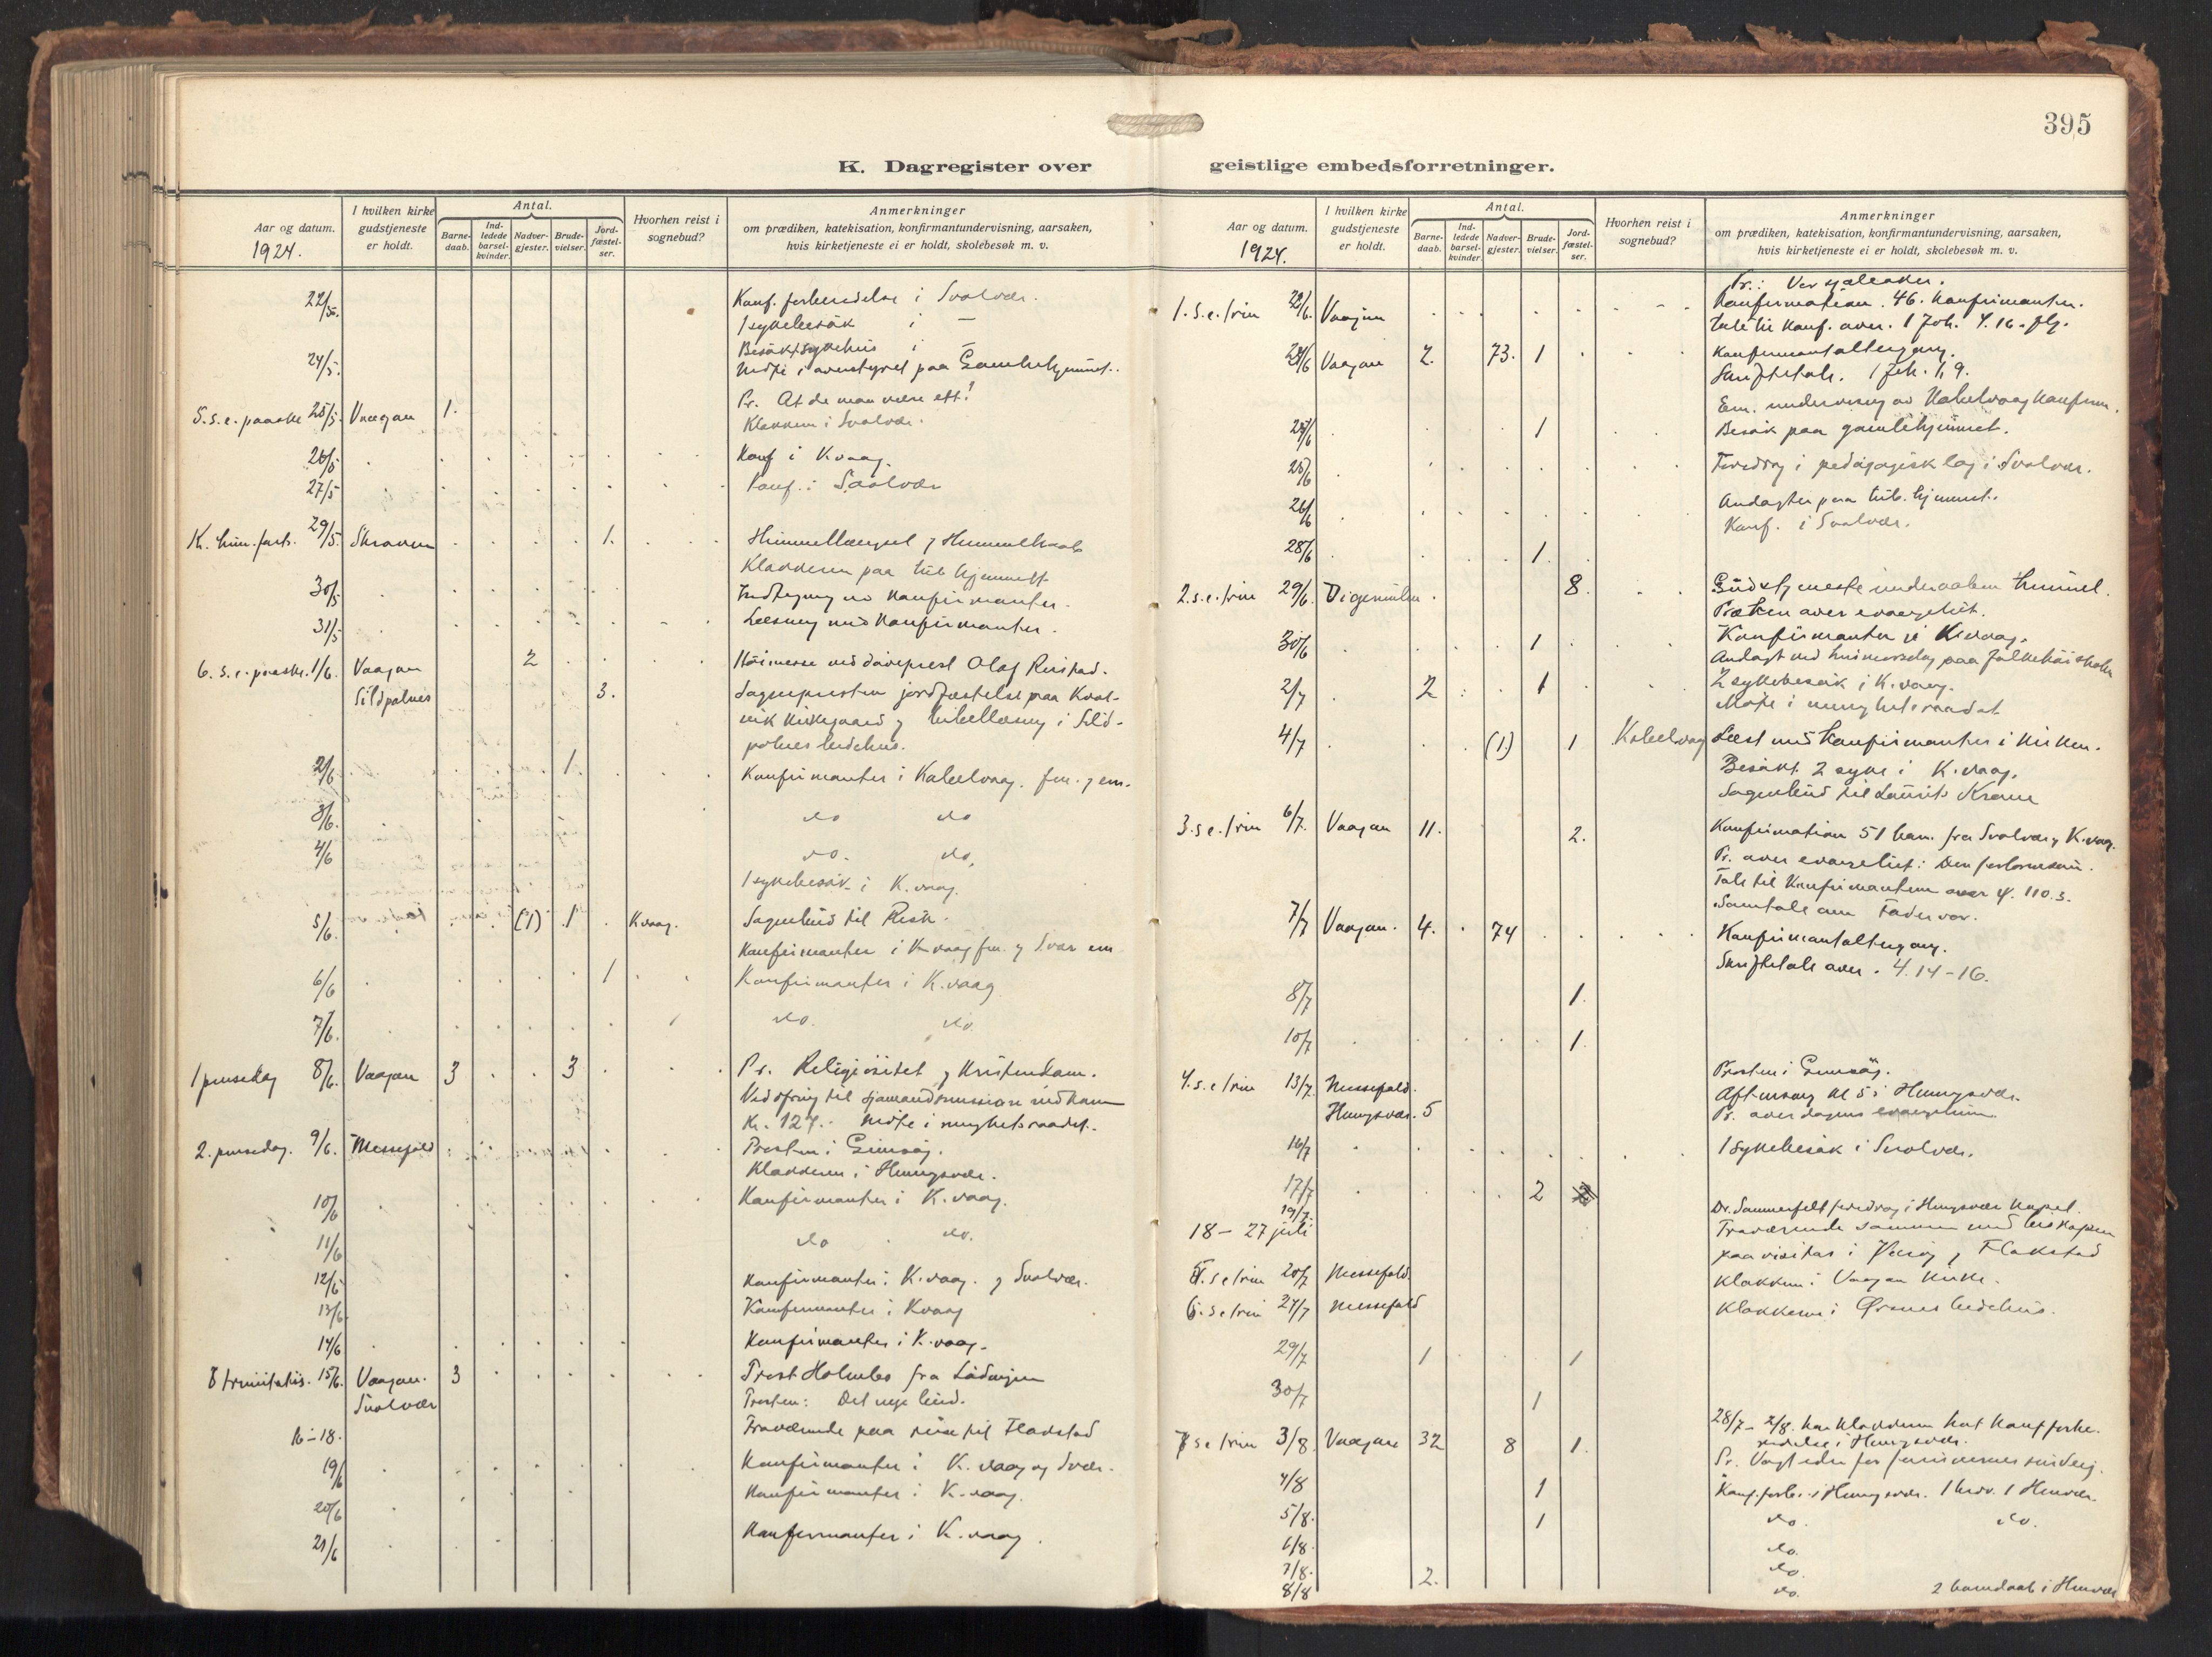 395
K. Dagregister over geistlige embedsforretninger.
Aar og datum.
1924.
I hvilken kirke gudstjeneste er holdt.
Antal.
Barne-daab.
Ind-ledede barsel-kvinder.
Nadver-gjester.
Brude-vielser.
Jord-fæstel-ser.
Hvorhen reist i sognebud?
Anmerkninger
om prædiken, katekisation, konfirmantundervisning, aarsaken,
hvis kirketjeneste ei er holdt, skolebesøk m. v.
22/5. Konf. forberedelse i Svolvær.
1 sykebesøk i —
Besøkt sykehus i —
24/5. Møte i paa Gamlehjemmet.
5. s. e. paaske 25/5. Vaagan 1. Pr. At de maa være ett!
Klokkeren i Svolvær.
26/5 Konf i K.vaag.
27/5 Konf. i Svolvær
K. him. fart. 29/5. Skroven 1. Himmellængsel og Himmelhaab
Klokkeren paa hjemmet
30/5 av konfirmanter.
31/5 Læsning med konfirmanter.
6. s. e. paaske. 1/6. Vaagan 2 Høimesse ved Olaf
Sildpolnes 3. Sognepresten jordfæstelse paa
kirkegaard og bibellæsning i Sild-
polnes bedehus.
2/6 1. Konfirmanter i Kabelvaag. fm. og em.
3/6. do do
4/6 do. do.
1 sykebesøk i K.vaag.
5/6. (1) 1 K.vaag. Sognebud til
Konfirmanter i K.vaag fm. og Svær em
6/6 1 Konfirmanter i K.vaag
7/6. do. do.
1 pinsedag 8/6. Vaagan 3 3 Pr. Religiøsitet og Kristendom.
til sjømandsmission indkom
Kr. 127. Møte i menighetsraadet.
2. pinsedag. 9/6. Messefald Presten i Gimsøy.
Klokkeren i Henningsvær.
10/6 Konfirmanter i K.vaag.
11/6 do do.
12/6 Konfirmanter i K.vaag. og Svolvær.
13/6 Konfirmanter i Kvaag
14/6 Konfirmanter i K.vaag.
trinitatis. 15/6. Vaagan. 3 Prost Holmbo fra Lødingen
Svolvær Presten: Det nye bud.
16-18. Fraværende paa reise til Flakstad
19/6 Konfirmanter i K.vaag og Svær.
20/6 Konfirmanter i K.vaag.
21/6 Konfirmanter i K.vaag.
Aar og datum.
1924.
I hvilken kirke gudstjeneste er holdt.
Antal.
Barne-daab.
Ind-ledede barsel-kvinder.
Nadver-gjester.
Brude-vielser.
Jord-fæstel-ser.
Hvorhen reist i sognebud?
Anmerkninger
om prædiken, katekisation, konfirmantundervisning, aarsaken,
hvis kirketjeneste ei er holdt, skolebesøk m. v.
Pr.:
1. s. e. trin 22/6. Vaagan Konfirmation. 46. konfirmanter.
Tale til konf. over. 1 Joh. 4. 16. flg.
Vaagan 2. 73. 1 Konfirmantaltergang.
Skriftetale. 1 Joh. 1, 9.
Em. undervisning av Kabelvaag konfirm.
1 Besøk paa gamlehjemmet.
25/6 Foredrag i pedagogisk lag i Svolvær.
26/6 Andagter paa hjemmet.
Konf. i Svolvær.
28/6 1.
2. s. e. trin 29/6. Digermulen 8. Gudstjeneste under aaben himmel.
Præken over evangeliet.
30/6 1 Konfirmanter i K.vaag.
Andagt ved paa folkehøiskolen
2/7 2 1 2 sykebesøk i K.vaag.
Møte i menighetsraadet
4/7 (1) 1 Kabelvaag Læst med konfirmanter i kirken.
Besøkt 2 syke i K.vaag.
Sognebud til Laurits Krane
3. s. e. trin 6/7. Vaagan 11. 2. Konfirmation 51 barn. fra Svolvær og K.vaag.
Pr. over evangeliet: Den fortapte søn.
Tale til Konfirmantene over 110. 3.
Samtale om Fader vor.
7/7 Vaagan. 4. 74 Konfirmantaltergang.
Skriftetale over. 4. 14-16.
8/7 1.
10/7 1.
4. s. e. trin 13/7. Messefald. Presten i Gimsøy.
Henningsvær. 5 Aftensang kl 5 i Henningsvær.
Pr. over dagens evangelium
16/7 1 sykebesøk i Svolvær.
17/7 2
19/7. Dr. Sommerfelt foredrag i Henningsvær kapel.
18 - 27 juli Fraværende sammen med biskopen
paa visitas i Værøy og Flakstad
5. s e trin 20/7 Messefald. Klokkeren i Vaagan kirke.
6. s e trin 27/7 Messefald Klokkeren i Ørsnes bedehus.
29/7 1 1
30/7 1
28/7 - 2/8. har klokkeren hat konf forbe-
redelse i Henningsvær.
7 s e trin 3/8. Vaagan 32 8 1. Pr. Vogt eder for fariseernes surdeig.
4/8 1 Konf. forb. i Henningsvær.
5/8. 1 do. do.
6/8. do.
7/8. do.
8/8 2. do. 2 barnedaab i Henvær